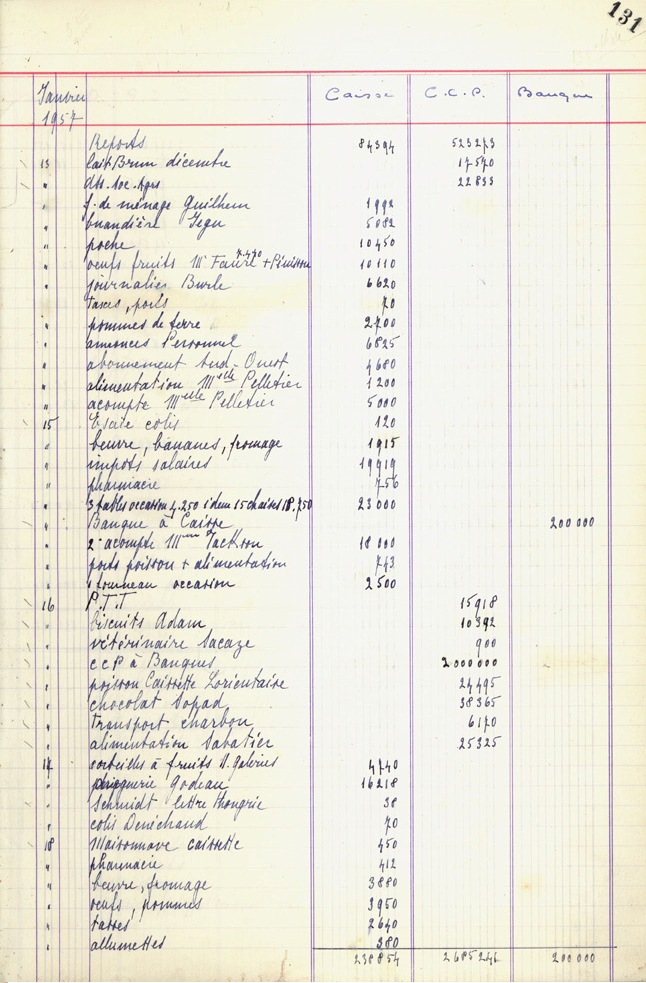 131
Janvier 1957 Caisse C.C.P. Banque
Reports 84394 523273
13 lait Brun décembre 17570
" 22833
" f. de ménage Guilhem 1992
" buandière Jegu 5082
" poche 10450
" oeufs fruits Mr Fauré 7.470 + Pénisson 10110
" journalier Burle 6620
" taxes, ports 70
" pommes de terre 2700
" annonces Personnel 6825
" abonnement Sud-Ouest 4680
" alimentation Melle Pelletier 1200
" acompte Melle Pelletier 5000
15 Esaïe colis 120
" beurre, bananes, fromage 1915
" impôts salaires 19919
" pharmacie 756
" 3 tables occasion 4.250 idem 15 chaises 18.750 23000
" Banque à Caisse 200000
" 2e acompte Mme Jackson 18000
" ports poisson + alimentation 743
" 1 fourneau occasion 2500
16 P.T.T 15918
" biscuits Adam 10392
" vétérinaire Sacaze 900
" CCP à Banques 2000000
" poisson Caissette Lorientaise 24495
" chocolat Sopad 38365
" transport charbon 6170
" alimentation Sabatier 25325
17 corbeilles à fruits N. Galeries 4740
" droguerie Godeau 16218
" Schmidt lettre Hongrie 38
" colis Dénéchaud 70
18 Maisonnave caissette 450
" pharmacie 412
" beurre, fromage 3880
" oeufs, pommes 3950
" tasses 2640
" allumettes 380
238854 2685246 200000